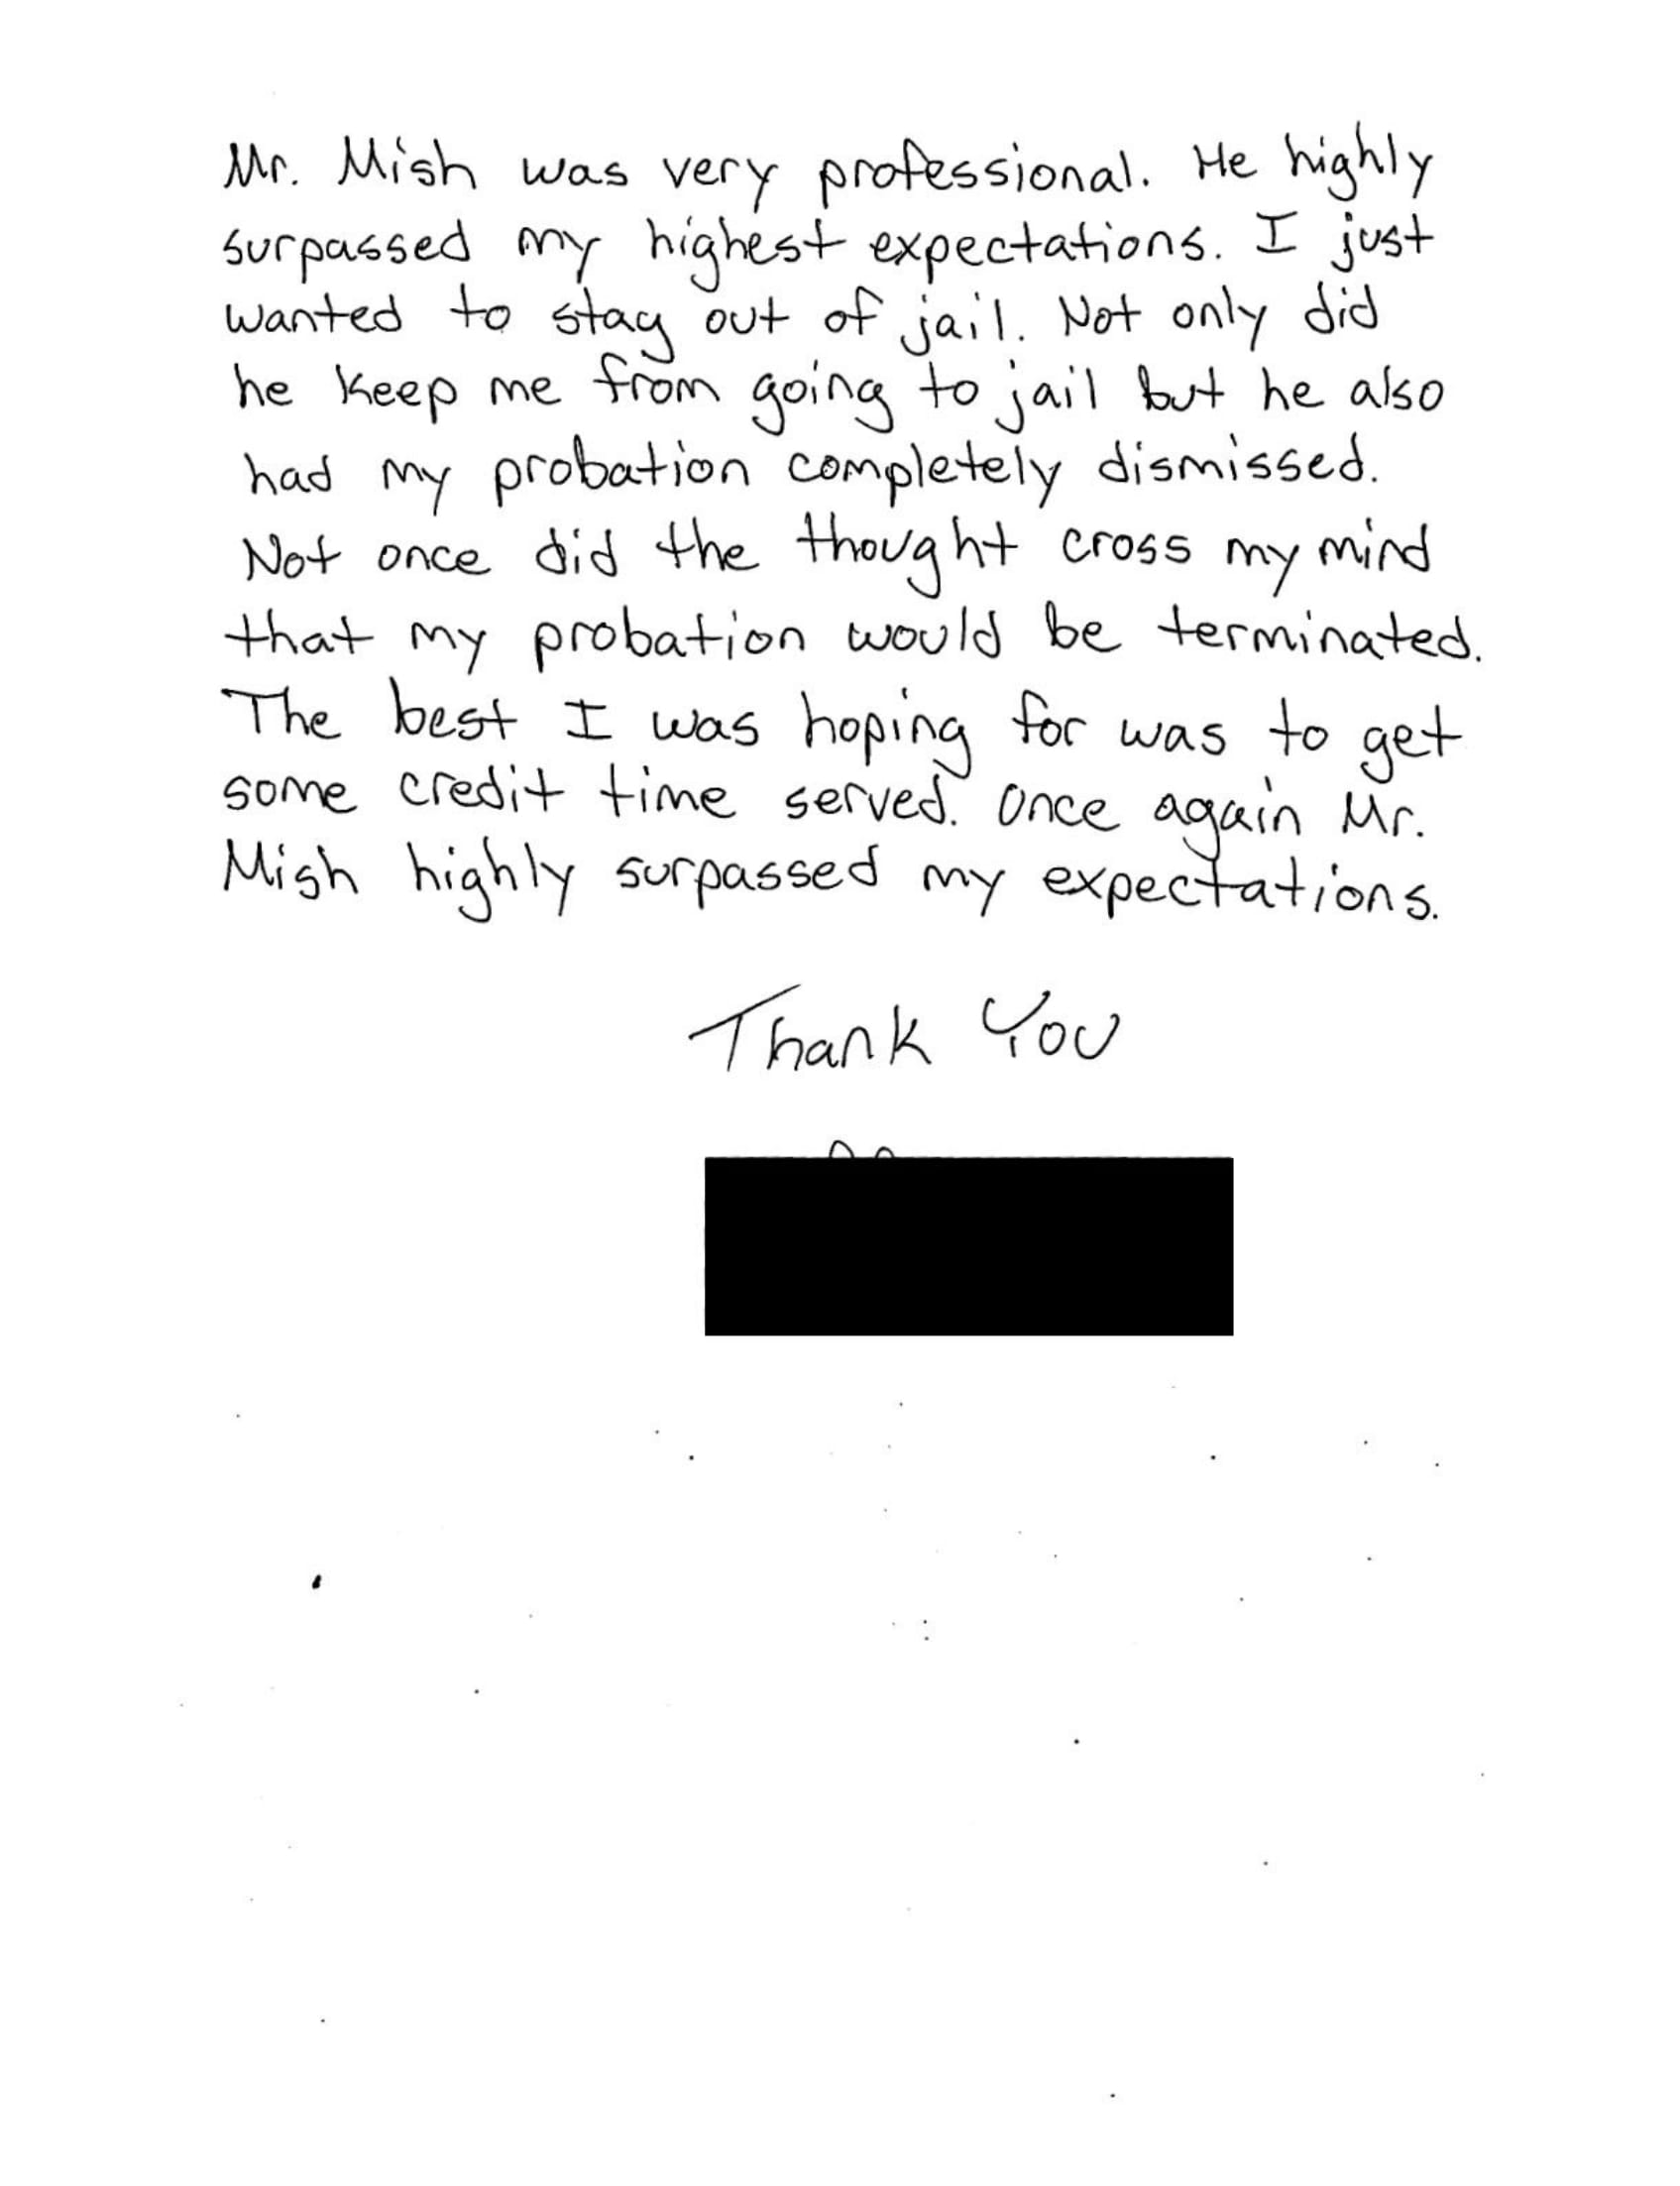 Mr. Mish was very professional. He highly
surpassed my highest expectations. I just
wanted to stay out of jail. Not only did
he keep me from going to jail but he also
had my probation completely dismissed.
Not once did the thought cross my mind
that my probation would be terminated.
The best I was hoping for was to get
some credit time served. Once again Mr.
Mish highly surpassed my expectations.
Thank You